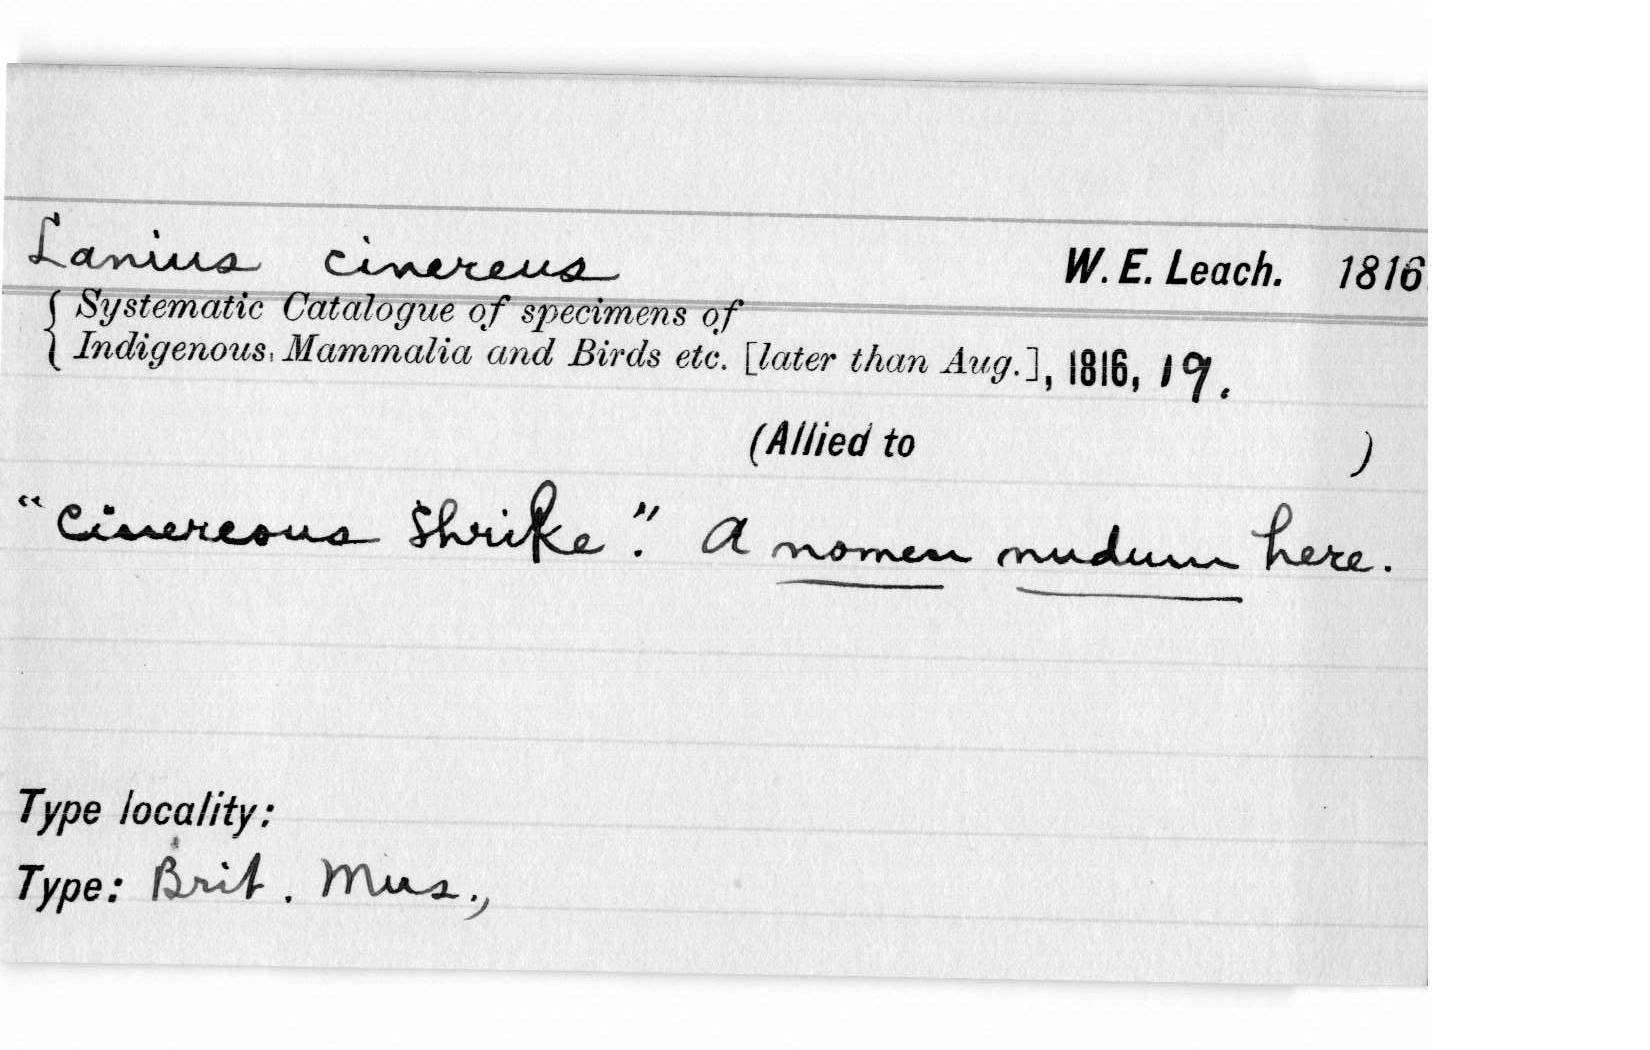 Lanius cinereus W. E. Leach. 1816
{ Systematic Catalogue of specimens of
Indigenous, Mammalia and Birds etc. [later than Aug.], 1816, 19.
(Allied to )
“Cinereous Shrike”. A nomen nudum here.
Type locality:
Type: Brit. Mus.,